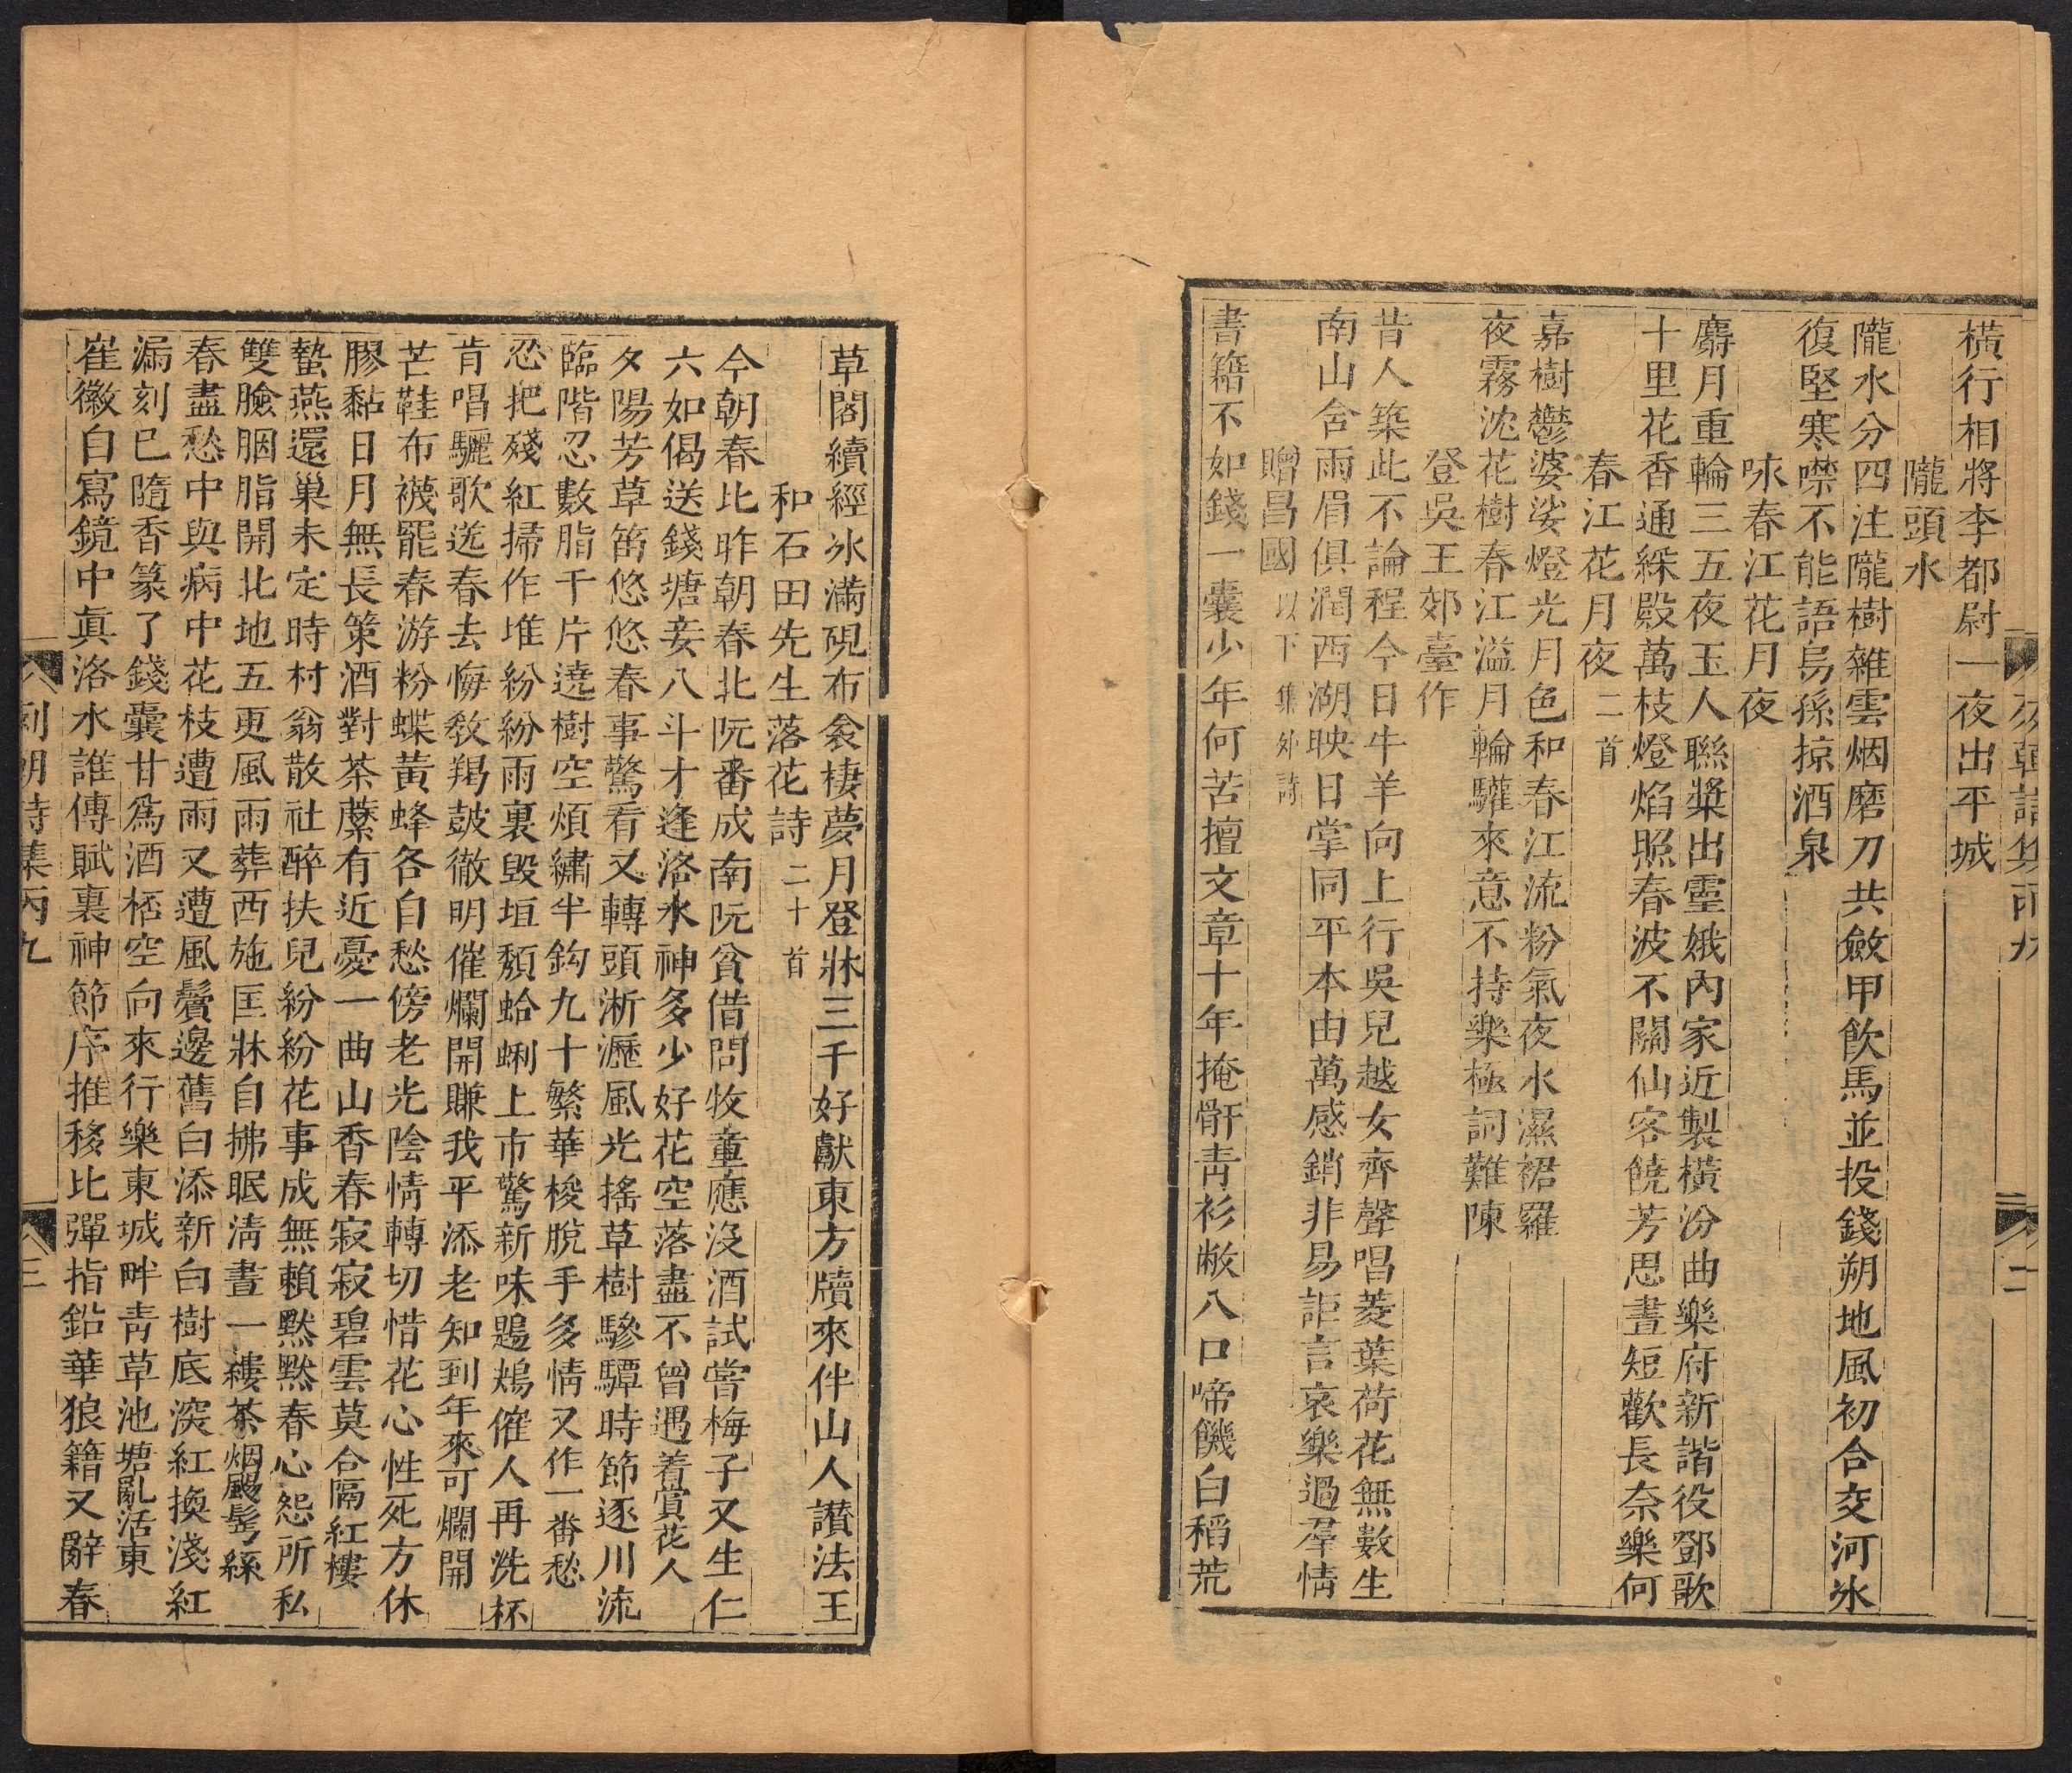 橫行相將李都尉一夜出平城
隴頭水
隴水分四注隴樹雜雲烟磨刀共斂甲飲馬並投錢朔地風初合交河冰
復堅寒噤不能語烏孫掠酒泉
咏春江花月夜
麝月重輪三五夜玉人聯槳出靈娥內家近製橫汾曲樂府新諧役鄧歌
十里花香通綵殿萬枝燈焰照春波不關仙客饒芳思晝短歡長奈樂何
春江花月夜二首
嘉樹鬱婆娑燈光月色和春江流粉氣夜水濕裙羅
夜霧沈花樹春江溢月輪驩來意不持樂極詞難陳
登吳王郊臺作
昔人築此不論程今日牛羊向上行吳兒越女齊聲唱菱葉荷花無數生
南山含雨眉俱潤西湖映日掌同平本由萬感銷非易詎言哀樂過羣情
贈昌國以下集外詩
書籍不如錢一囊少年何苦擅文章十年掩骭青衫敝八口啼饑白稻荒
草閣續經冰滿硯布衾棲夢月登牀三千好獻東方牘來伴山人讃法王
和石田先生落花詩二十首
今朝春比昨朝春北阮番成南阮貧借問牧童應沒酒試嘗梅子又生仁
六如偈送錢塘妾八斗才逢洛水神多少好花空落盡不曾遇着賞花人
夕陽芳草笛悠悠春事驚看又轉頭淅瀝風光搖草樹驂驔時節逐川流
臨階忍數脂千片遶樹空煩繡半鈎九十繁華梭脫手多情又作一番愁
忍把殘紅掃作堆紛紛雨裏毀垣頹蛤蜊上市驚新味鶗鴂催人再洗杯
肯唱驪歌送春去悔教羯鼓徹明催爛開賺我平添老知到年來可爛開
芒鞋布襪罷春游粉蝶黃蜂各自愁傍老光陰情轉切惜花心性死方休
膠黏日月無長策酒對茶䕷有近憂一曲山香春寂寂碧雲莫合隔紅樓
蟄燕還巢未定時村翁散社醉扶兒紛紛花事成無賴默默春心怨所私
雙臉胭脂開北地五更風雨葬西施匡牀自拂眠清晝一縷茶烟颺鬂絲
春盡愁中與病中花枝遭雨又遭風鬢邊舊白添新白樹底深紅換淺紅
漏刻已隨香篆了錢囊甘爲酒桮空向來行樂東城畔青草池塘亂活東
崔徽自寫鏡中真洛水誰傳賦裏神節序推移比彈指鉛華狼籍又辭春
列朝詩集丙九
三